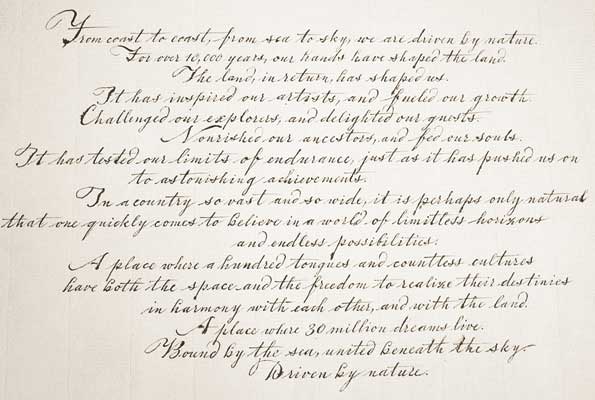 From coast to coast, from sea to sky, we are driven by nature.
For over 10,000 years, our hands have shaped the land.
The land, in return, has shaped us.
It has inspired our artists, and fueled our growth.
Challenged our explorers, and delighted our guests.
Nourished our ancestors, and fed our souls.
It has tested our limits of endurance, just as it has pushed us on
to astonishing achievements.
In a country so vast and so wide, it is perhaps only natural
that one quickly comes to believe in a world of limitless horizons
and endless possibilities.
A place where a hundred tongues and countless cultures
have both the space and the freedom to realize their destinies
in harmony with each other, and with the land.
A place where 30 million dreams live.
Bound by the sea, united beneath the sky.
Driven by nature.